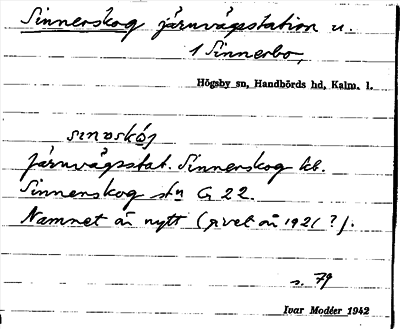 Sinnerskog järnvägsstation u.
1 Sinnerbo,
Högsby sn, Handbörds hd, Kalm. l.
sınəskóg
järnvägsstat. Sinnerskog kb.
Sinnerskog stn G 22.
Namnet är nytt (givet år 1921 ?).
s. 79
Ivar Modéer 1942